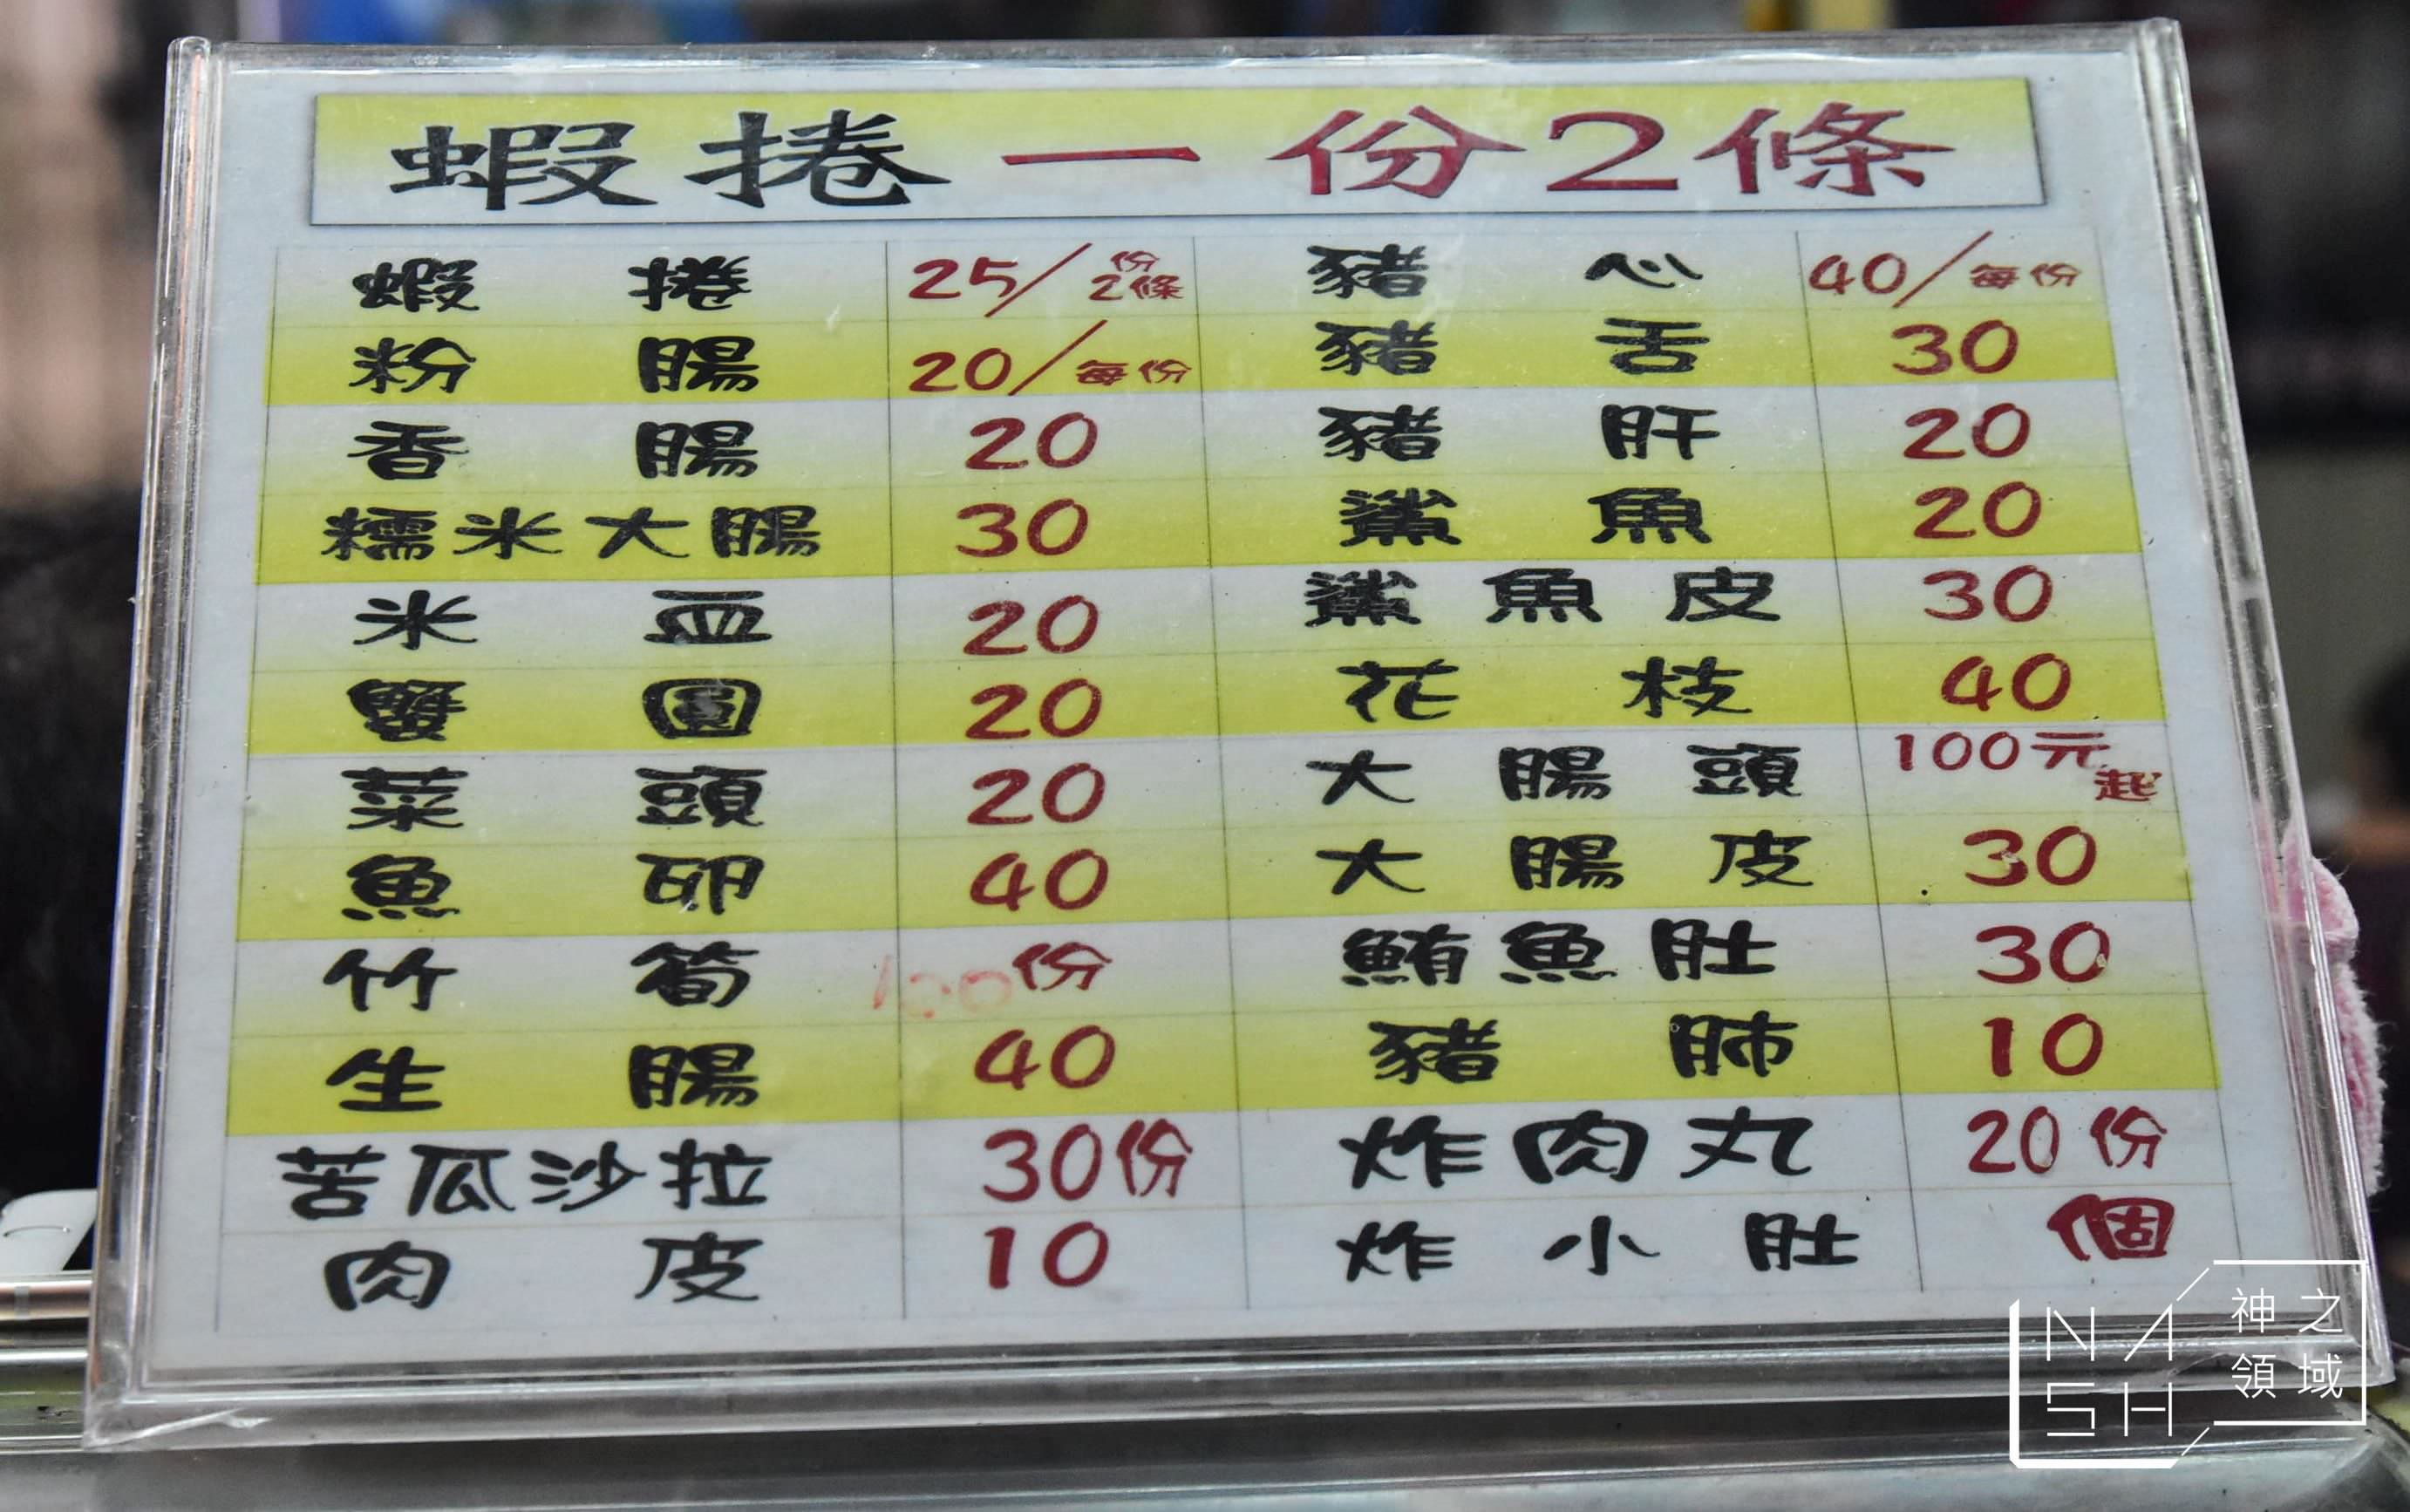 蝦捲一份2條
蝦捲 25/份2條 豬心 40/每份
粉腸 20/每份 豬舌 30
香腸 20 豬肝 20
糯米大腸 30 鯊魚 20
米血 20 鯊魚皮 30
蟹圓 20 花枝 40
菜頭 20 大腸頭 100元起
魚卵 40 大腸皮 30
竹筍 100份 鮪魚肚 30
生腸 40 豬肺 10
苦瓜沙拉 30份 炸肉丸 20份
肉皮 10 炸小肚 個
NASH 神之領域